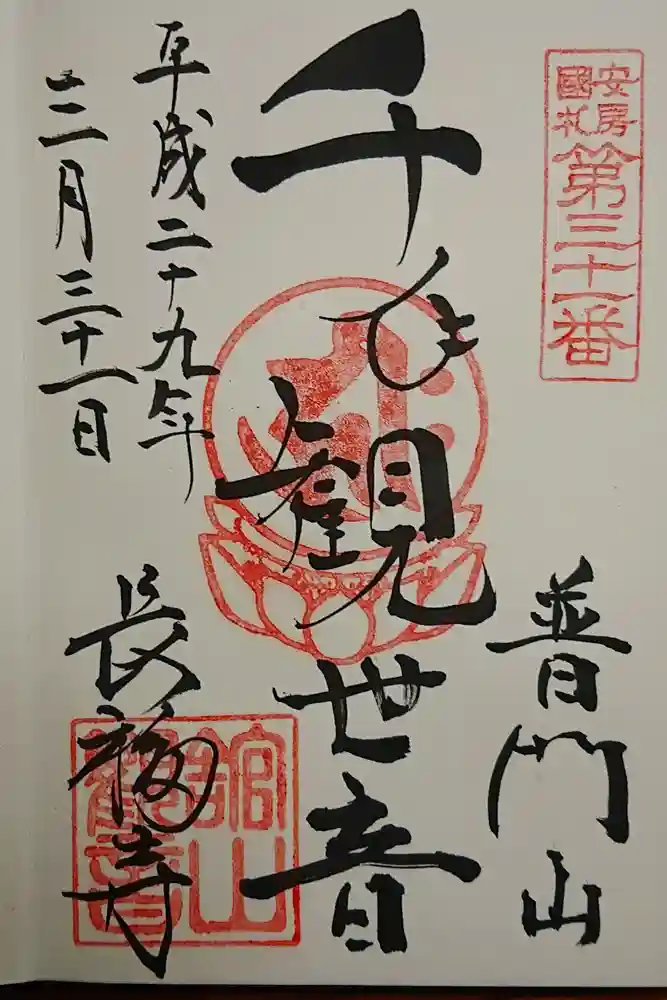 安房
國札
第三十一番
普門山
千手観世音
平成二十九年
三月三十一日
長福寺
館山